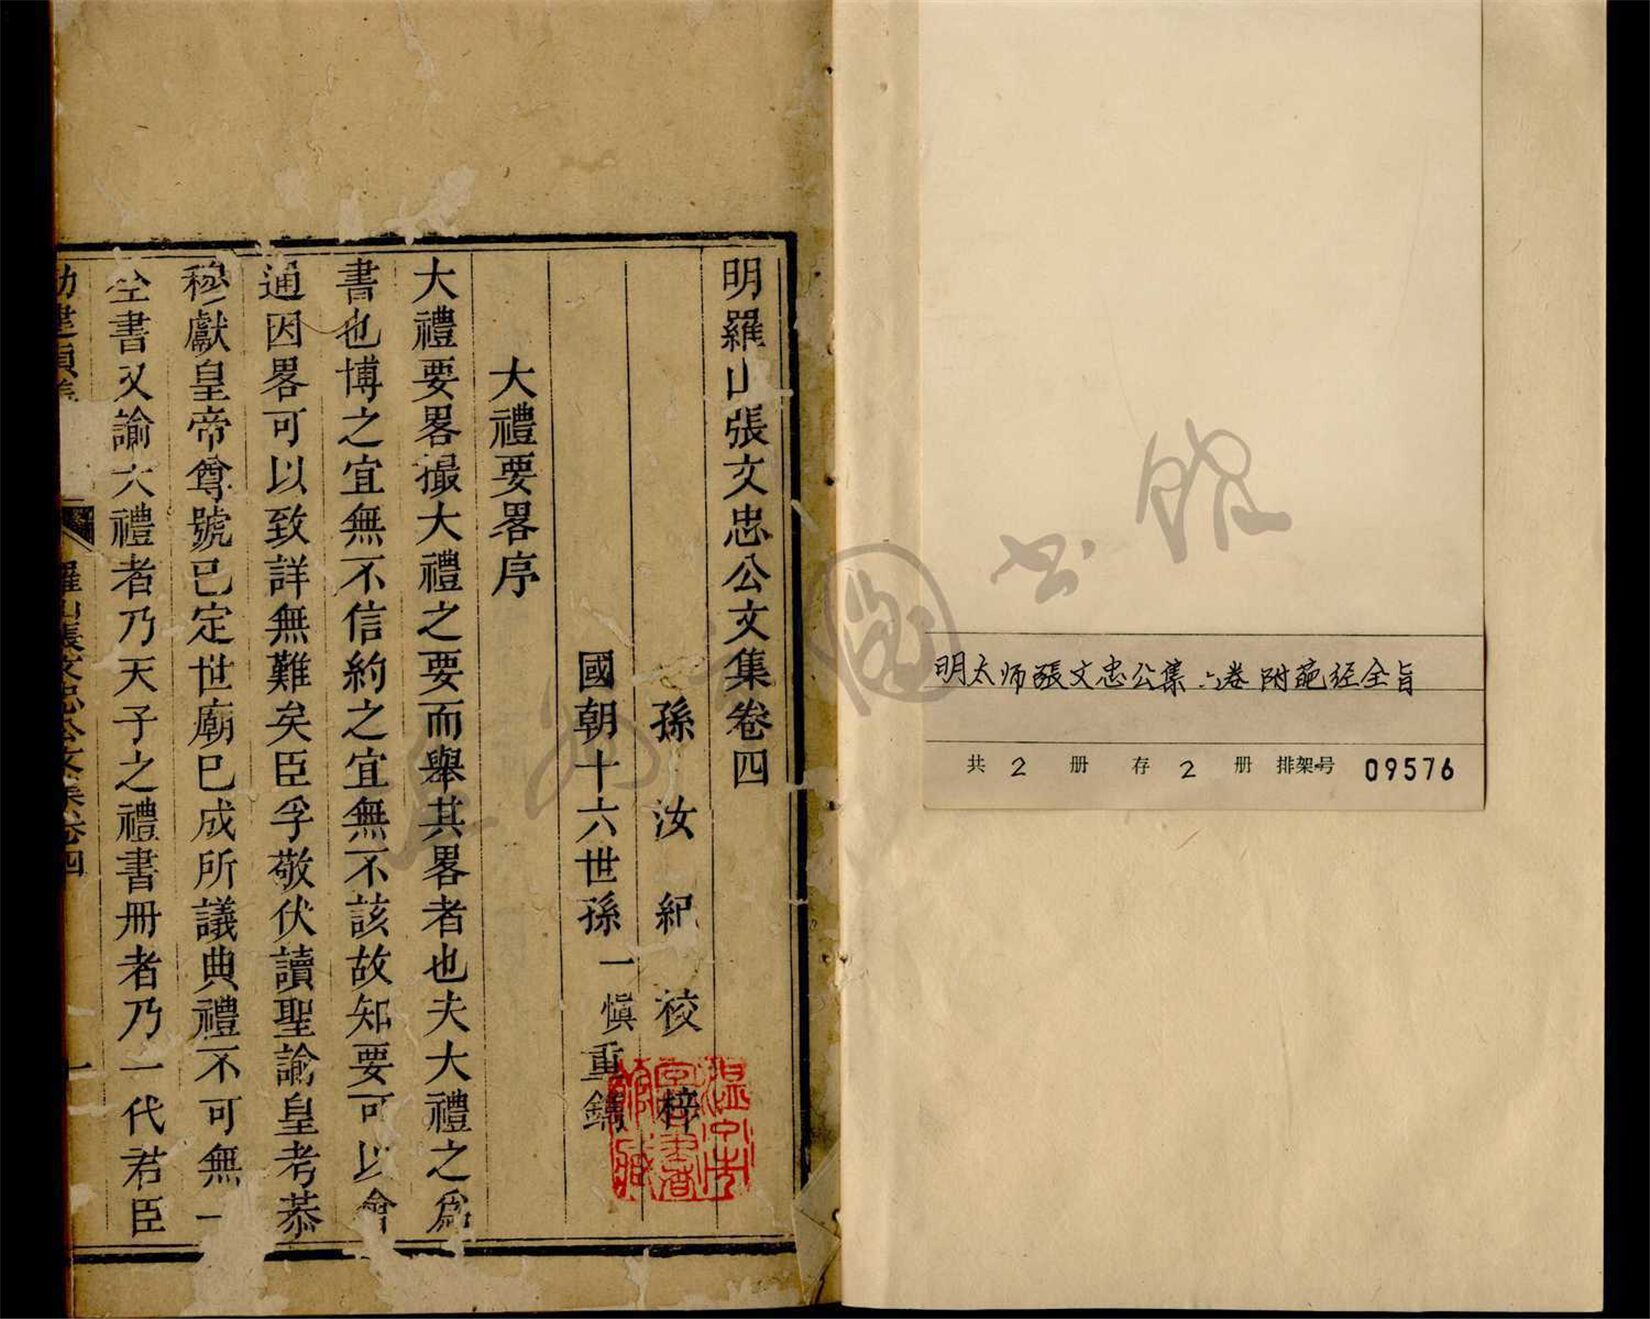 明太师張文忠公集 六卷 附葩经全旨
共 2 册 存 2 册 排架号 09576
明羅山張文忠公文集卷四
孫汝紀校梓
國朝十六世孫一愼重鐫
大禮要畧序
大禮要畧撮大禮之要而舉其畧者也夫大禮之爲
書也博之宜無不信約之宜無不該故知要可以會
通因畧可以致詳無難矣臣孚敬伏讀聖諭皇考恭
穆獻皇帝尊號已定世廟已成所議典禮不可無一
全書又諭大禮者乃天子之禮書冊者乃一代君臣
羅山張文忠公文集卷四
一
温州市圖書館藏
溫州圖书馆